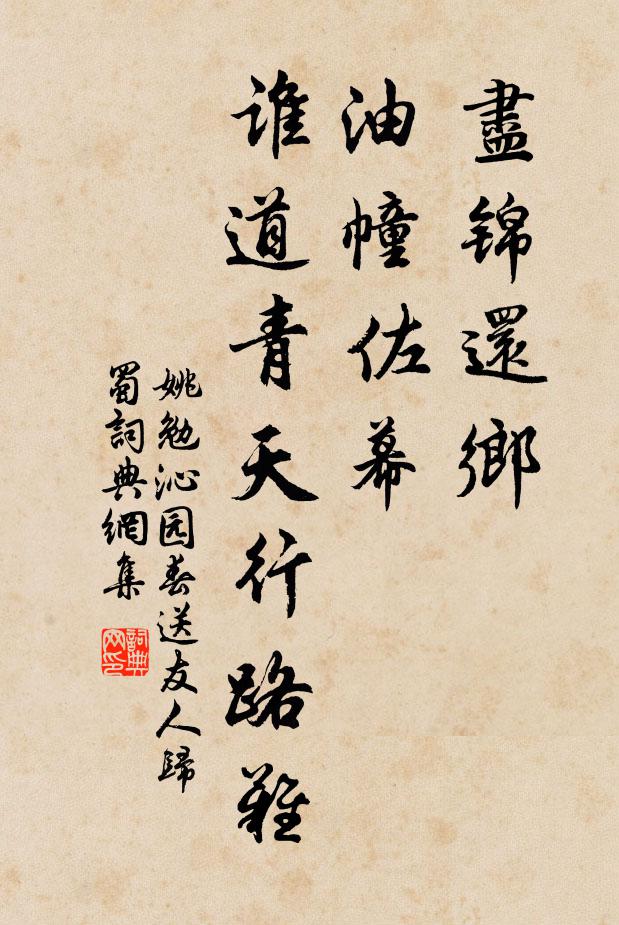 盡錦還鄉
油幢佐幕
誰道青天行路難
姚勉沁园春送友人歸
蜀詞典網集
詞典网印